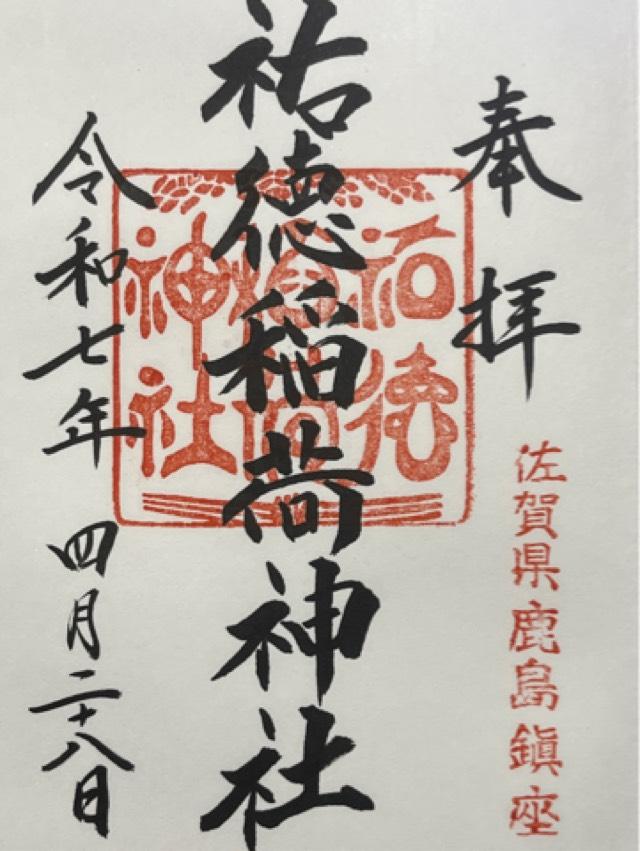 奉拝
佐賀県鹿島鎮座
祐德稲荷神社
祐徳
稲荷
神社
令和七年 四月二十八日